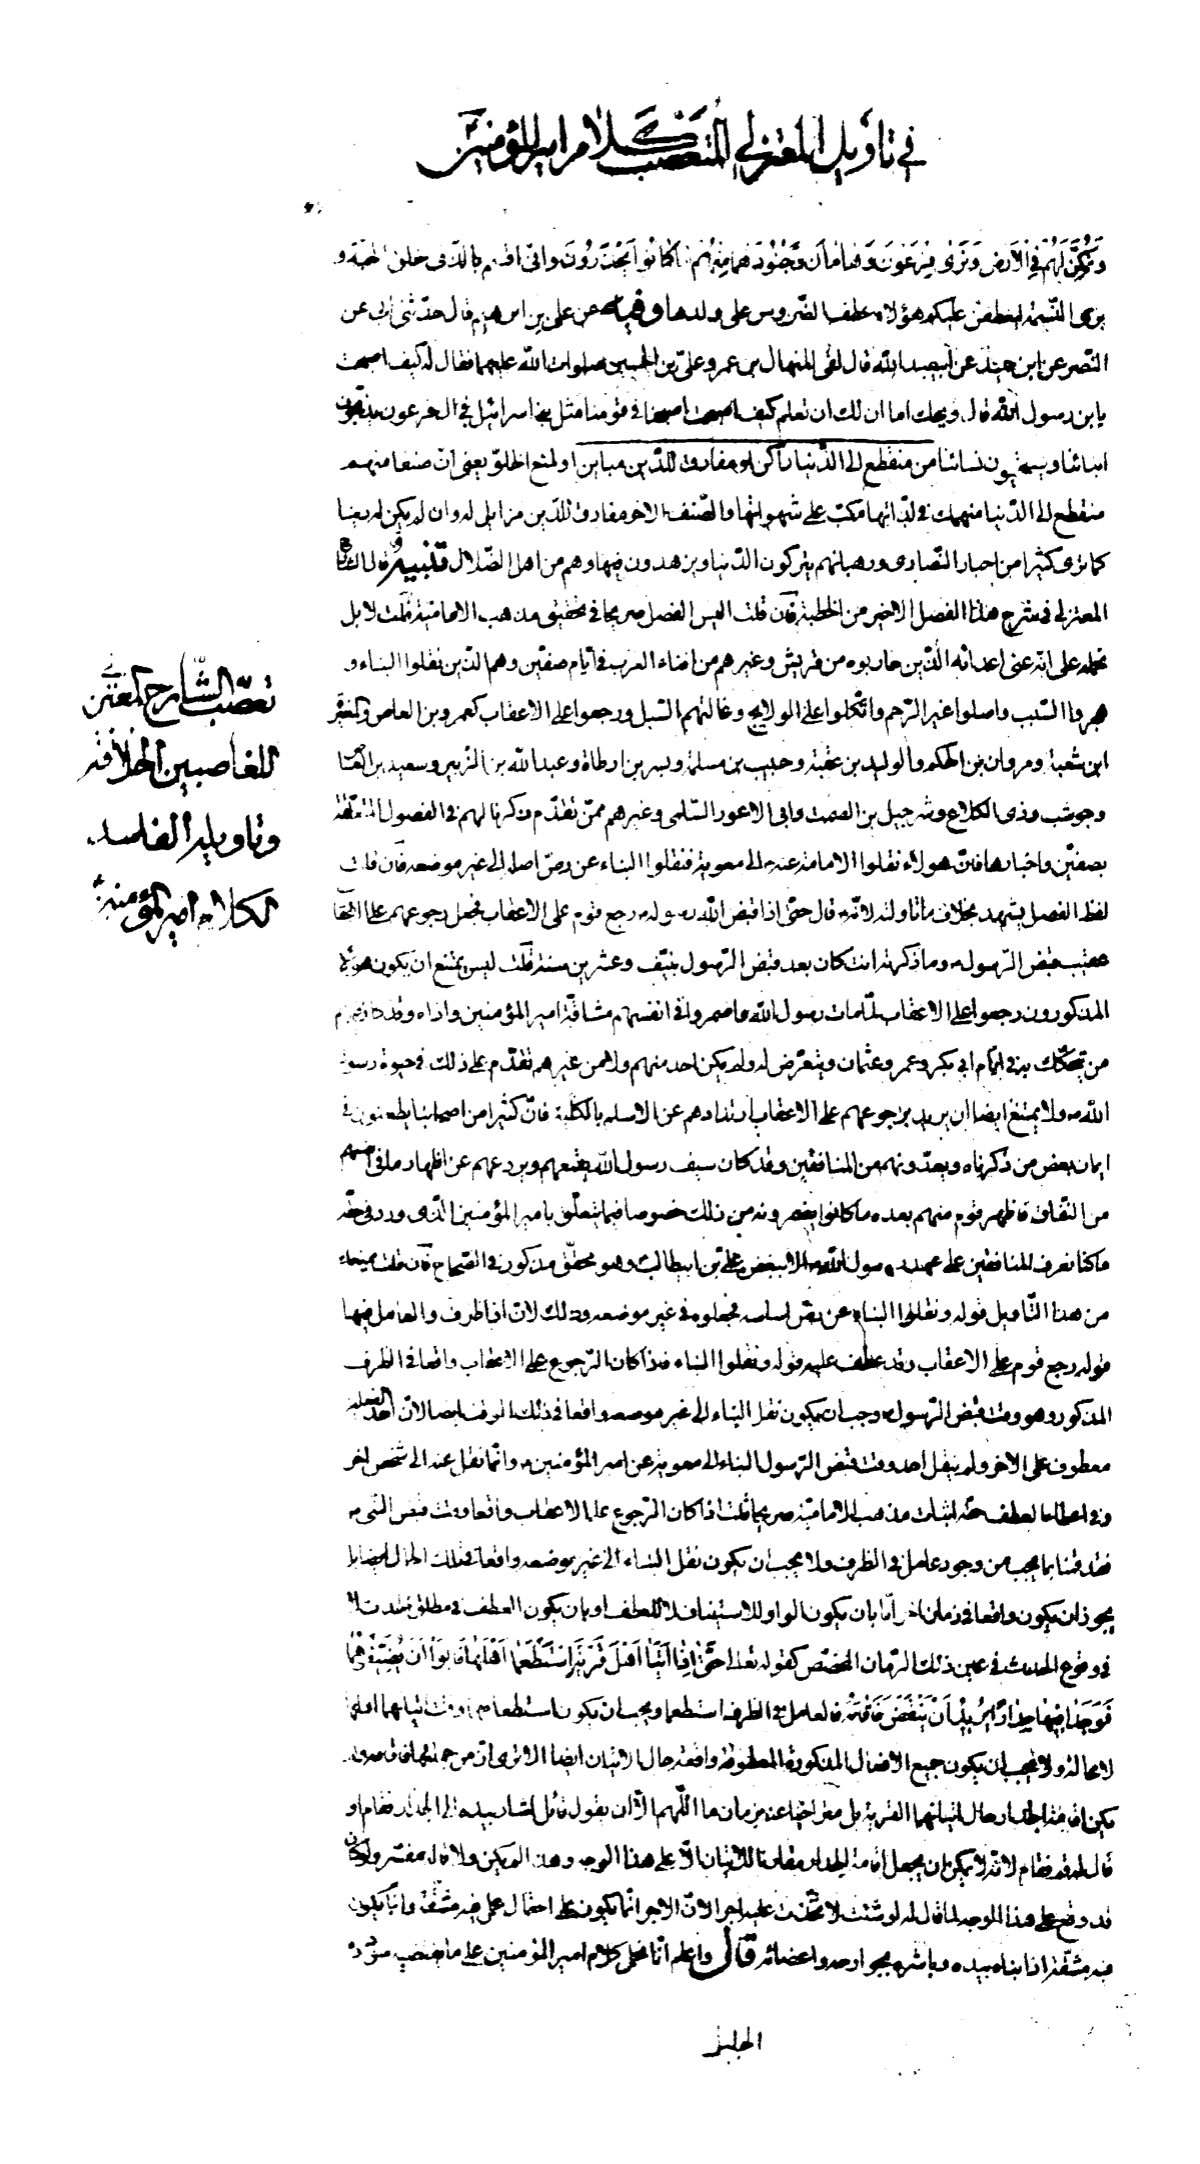 في تاويل المعتزلي المتعصب كلام امير المؤمنين
وَنُمَكِّنَ لَهُمْ فِي الْاَرْضِ وَنُرِىَ فِرْعَوْنَ وَهَامَانَ وَجُنُودَهُمَا مِنْهُمْ مَا كَانُوا يَحْذَرُونَ وانّى اقسم بالّذى خلق الحبّة و
برىء النّسمة ليعطفنّ عليكم هؤلاء عطف الضّروس على ولدها وفيه عن على بن ابراهيم قال حدّثنى ابى عن
النّضر عن ابن حميد عن ابيعبد الله قال لقى المنهال بن عمرو علىّ بن الحسين صلوات الله عليهما فقال له كيف اصبحت
يابن رسول الله قال ويحك اما ان لك ان تعلم كيف اصبحت اصبحنا في قومنا مثل بنى اسرائيل في ال فرعون يذبّحون
ابنائنا ويستحيون نسائنا من منقطع الى الدّنيا راكن او مفارق للدّين مباين او لمنع الخلوّ يعنى انّ صنفا منهم
منقطع الى الدّنيا منهمك في لذّاتها مكبّ على شهواتها والصّنف الاخر مفارق للدّين مزايل له وان لم يكن له دنيا
كما نرى كثيرا من احبار النّصارى ورهبانهم يتركون الدّنيا ويزهدون فيها وهم من اهل الضّلال تنبيه قال الشارح
المعتزلى في شرح هذا الفصل الاخير من الخطبة فان قلت اليس الفصل صريحا في تحقيق مذهب الاماميّة قلت لا بل
نحمله على انّه عنى اعدائه الّذين حاربوه من قريش وغيرهم من افناء العرب في ايّام صفّين وهم الّذين نقلوا البناء و
هجروا السّبب واصلوا غير الرّحم واتّكلوا على الولايج وغالتهم السّبل ورجعوا على الاعقاب كعمرو بن العاص والمغيرة
ابن شعبة ومروان بن الحكم والوليد بن عقبة وحبيب بن مسلمة وبسر بن ارطاة وعبد الله بن الزّبير وسعيد بن العاص
وحوشب وذى الكلاع وشرحبيل بن الصمت وابى الاعور السّلمى وغيرهم ممّن تقدّم ذكرنا لهم في الفصول المتعلّقة
بصفّين واخبارها فانّ هولاء نقلوا الامامة عنه الى معوية فنقلوا البناء عن رصّ اصله الى غير موضعه فان قلت
لفظ الفصل يشهد بخلاف ما تاوّلته لانّه قال حتّى اذا قبض الله رسوله رجع قوم على الاعقاب فجعل رجوعهم على الاعقاب
عقيب قبض الرّسول وما ذكرته انت كان بعد قبض الرّسول بنيّف وعشرين سنة قلت ليس يمتنع ان يكون هؤلاء
المذكورون رجعوا على الاعقاب لمّا مات رسول الله واضمروا في انفسهم مشاقّة امير المؤمنين واذاه وقد كان فيهم
من يتحكّك به في ايّام ابى بكر وعمر وعثمان ويتعرّض له ولم يكن احد منهم ولا من غيرهم يقدّم على ذلك في حيوة رسول
الله ولا يمتنع ايضا ان يريد برجوعهم على الاعقاب ارتدادهم عن الاسلام بالكليّة فانّ كثيرا من اصحابنا يطعنون في
ايمان بعض من ذكرناه ويعدّونهم من المنافقين وقد كان سيف رسول الله يقمعهم ويردعهم عن اظهار ما في انفسهم
من النّفاق فاظهر قوم منهم بعده ما كانوا يضمرونه من ذلك خصوصا فيما يتعلّق بامير المؤمنين الّذى ورد في حقّه
ما كنا نعرف المنافقين على عهد رسول الله الا ببغض علىّ بن ابيطالب وهو محقّق مذكور في الصّحاح فان قلت يمنعك
من هذا التّاويل قوله ونقلوا البناء عن رصّ اساسه فجعلوه في غير موضعه وذلك لانّ اذا ظرف والعامل فيها
قوله رجع قوم على الاعقاب وقد عطف عليه قوله ونقلوا البناء فاذا كان الرّجوع على الاعقاب واقعا في الظرف
المذكور وهو وقت قبض الرّسول وجب ان يكون نقل البناء الى غير موضعه واقعا في ذلك الوقت ايضا لانّ احد الفعلين
معطوف على الاخر ولم ينقل احد وقت قبض الرّسول البناء الى معوية عن امير المؤمنين وانّما نقل عنه الى شخص اخر
وفي اعطاء العطف حقّه اثبات مذهب الاماميّة صريحا قلت اذا كان الرّجوع على الاعقاب واقعا وقت قبض النّبى
فقد قمنا بما يجب من وجود عامل في الظرف ولا يجب ان يكون نقل البناء الى غير موضعه واقعا في تلك الحال ايضا بل
يجوز ان يكون واقعا في زمان اخر امّا بان يكون الواو للاستيناف لا للعطف او بان يكون العطف في مطلق الحدث لا
في وقوع الحدث في عين ذلك الزّمان المخصّص كقوله تعالى حَتَّى اِذَا اَتَيَا اَهْلَ قَرْيَةٍ اسْتَطْعَمَا اَهْلَهَا فَاَبَوْا اَنْ يُضَيِّفُوهُمَا
فَوَجَدَا فِيهَا جِدَارًا يُرِيدُ اَنْ يَنْقَضَّ فَاَقَامَهُ فالعامل في الظرف استطعما ويجب ان يكون استطعامهما وقت اتيانهما اهلها
لا محالة ولا يجب ان يكون جميع الافعال المذكورة المعطوفة واقعة حال الاتيان ايضا الا ترى انّ من جملتها فاقامه ولم
يكن اقامة الجدار حال اتيانهما القرية بل متراخيا عنه بزمان ما اللّهمّ الّا ان يقول قائل اشار بيده الى الجدار فقام او
قال له قم فقام لانّه لا يمكن ان يجعل اقامة الجدار مقارنا للاتيان الّا على هذا الوجه وهذا لم يكن ولا قاله مفسّر ولو كان
قد وقع على هذا الوجه لما قال له لو شئت لاتّخذت عليه اجرا لانّ الاجر انّما يكون على احتمال عمل فيه مشقّة وانّما يكون
فيه مشقّة اذا بناه بيده وباشره بجوارحه واعضائه قال واعلم انّا نحمل كلام امير المؤمنين على ما يقتضيه سؤدده
الجليل
تعصّب الشّارح المعتزلي
للغاصبين الخلافة
وتاويله الفاسد
لكلام امير المؤمنين